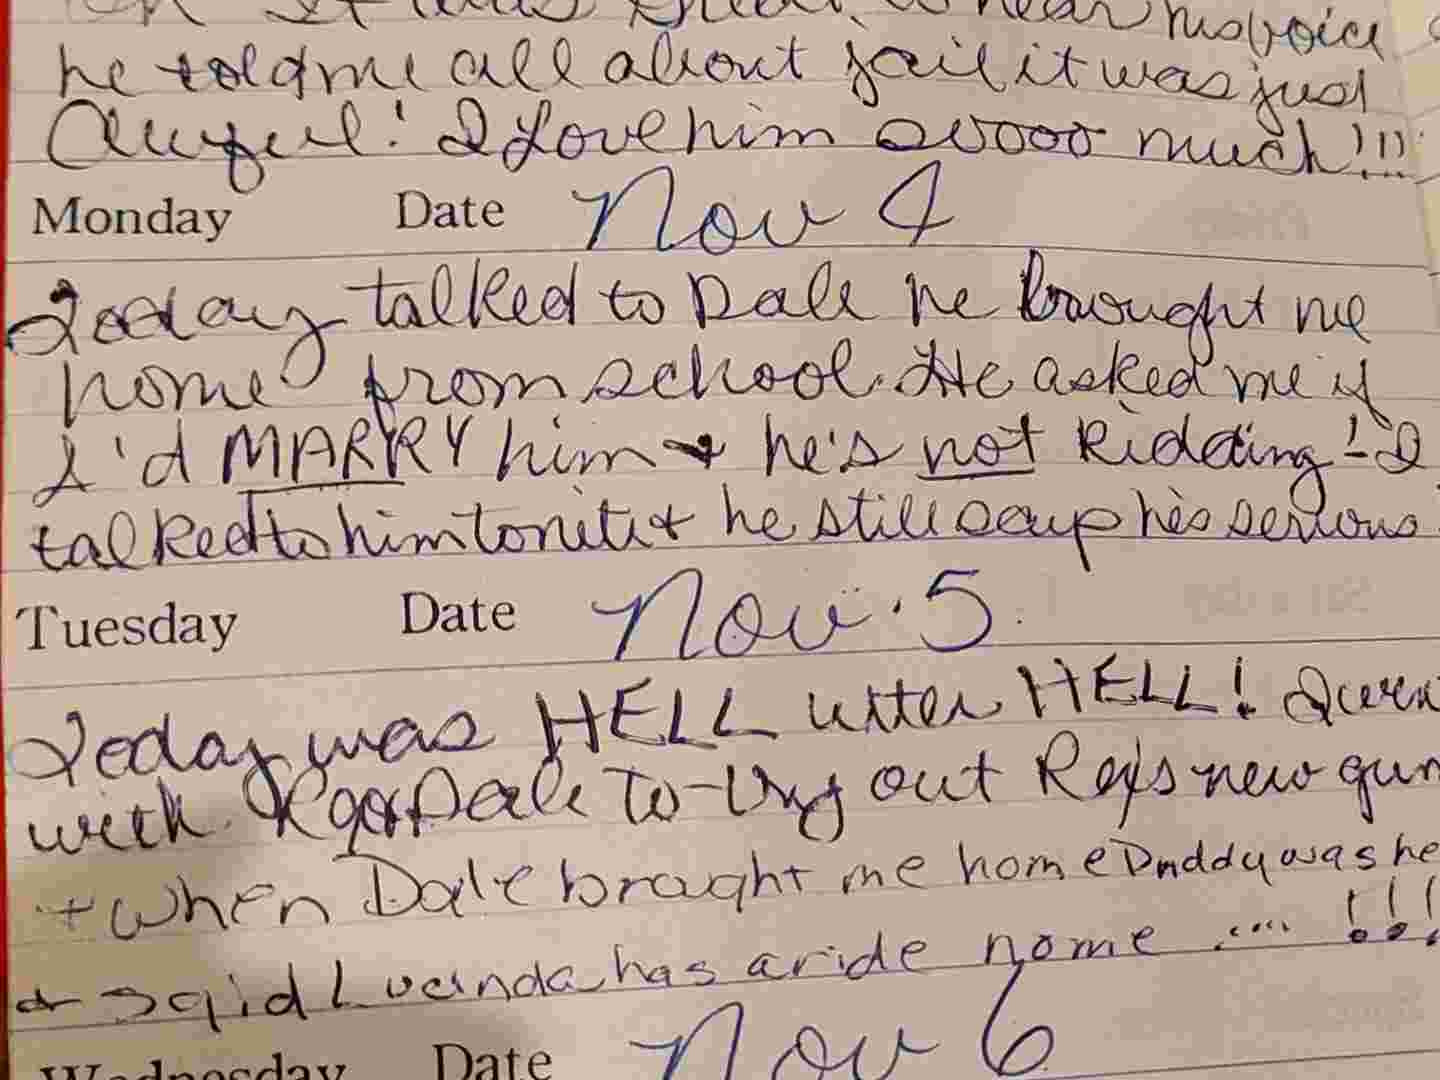 hear his voice
he told me all about jail it was just
Awful! I Love him soooo much!!!
Monday Date Nov 4
Today talked to Dale he brought me
home from school. He asked me if
I'd MARRY him + he's not kidding! I
talked to him tonite + he still says he's serious
Tuesday Date Nov. 5
Today was HELL utter HELL! I went
with R Dale to try out Rex's new gun
+ when Dale brought me home Daddy was he
+ said Lucinda has a ride home .... !!!
Wednesday Date Nov 6